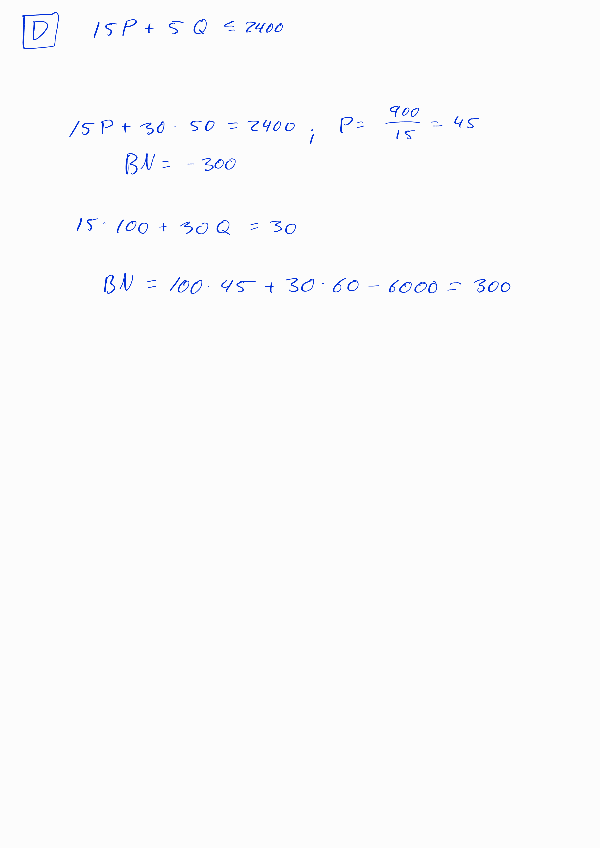 D 15P + 5Q ≤ 2400
15P + 30 · 50 = 2400 ; P = 900/15 = 45
BN = - 300
15 · 100 + 30Q = 30
BN = 100 · 45 + 30 · 60 - 6000 = 300